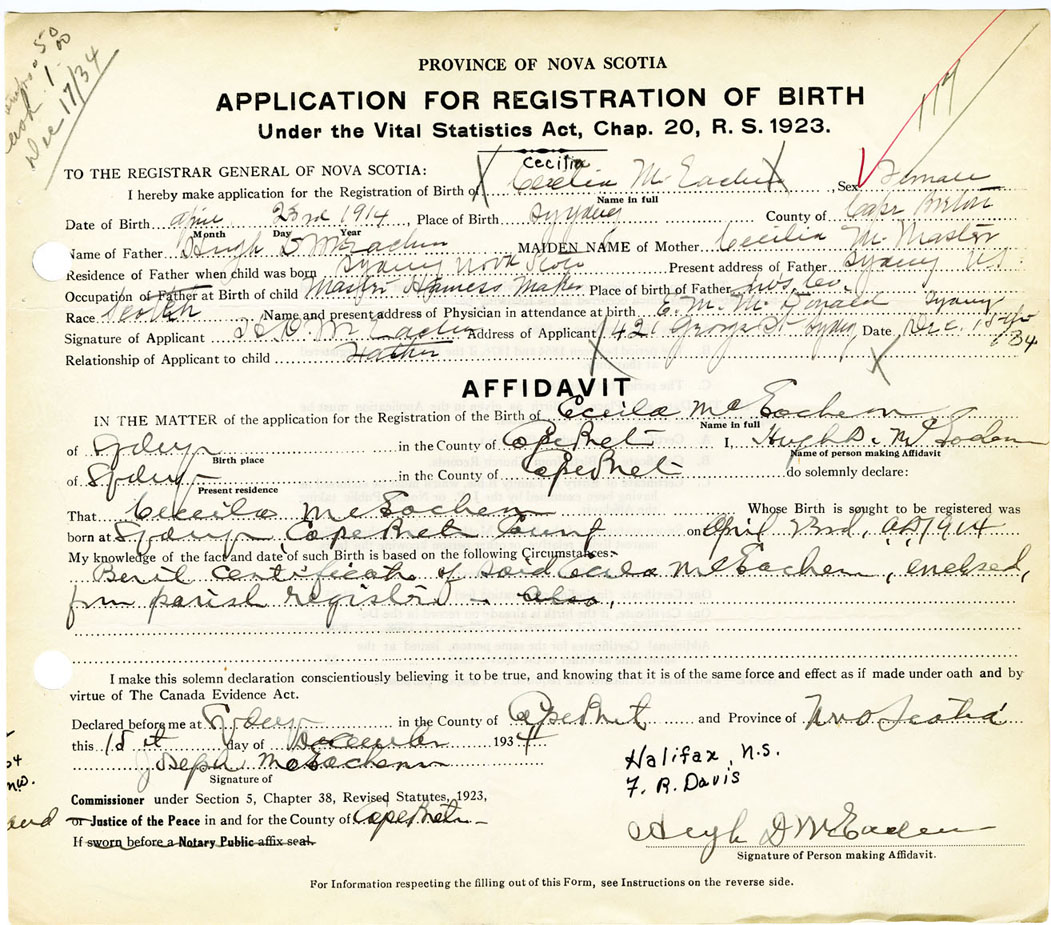 50
00
1.
Dec 17/34
PROVINCE OF NOVA SCOTIA
APPLICATION FOR REGISTRATION OF BIRTH
Under the Vital Statistics Act, Chap. 20, R. S. 1923.
TO THE REGISTRAR GENERAL OF NOVA SCOTIA:
Cecilia
I hereby make application for the Registration of Birth of Cecelia McEachern Sex Female
Name in full
Date of Birth April 23rd 1914, Place of Birth Sydney County of Cape Breton
Month Day Year
Name of Father Hugh D McEachern MAIDEN NAME of Mother Cecilia McMaster
Residence of Father when child was born Sydney Nova Scotia Present address of Father Sydney NS
Occupation of Father at Birth of child Master Harness Maker Place of birth of Father
Race Scotch Name and present address of Physician in attendance at birth E. M. McDonald Sydney
Signature of Applicant H. D. McEachern Address of Applicant 421 George St Sydney Date Dec. 15
34
Relationship of Applicant to child Father
AFFIDAVIT
IN THE MATTER of the application for the Registration of the Birth of Ceceila McEachern
Name in full
of Sydney in the County of Cape Bret I, Hugh D. McEachern
Birth place Name of person making Affidavit
of Sydney in the County of Cape Bret do solemnly declare:
Present residence
That Ceceila McEachern Whose Birth is sought to be registered was
born at Sydney Cape Breton County on April 23rd, A.D. 1914
My knowledge of the fact and date of such Birth is based on the following Circumstances:
Certificate of said Ceceila McEachern, enclosed,
from parish register also,
I make this solemn declaration conscientiously believing it to be true, and knowing that it is of the same force and effect as if made under oath and by
virtue of The Canada Evidence Act.
Declared before me at Sydney in the County of Cape Bret and Province of Nova Scotia
this 15 day of December 1934
Joseph McEachern
Signature of
Halifax, N.S.
F. R. Davis
Commissioner under Section 5, Chapter 38, Revised Statutes, 1923,
or Justice of the Peace in and for the County of Cape Breton
If sworn before a Notary Public affix seal.
Hugh D McEachern
Signature of Person making Affidavit.
For Information respecting the filling out of this Form, see Instructions on the reverse side.